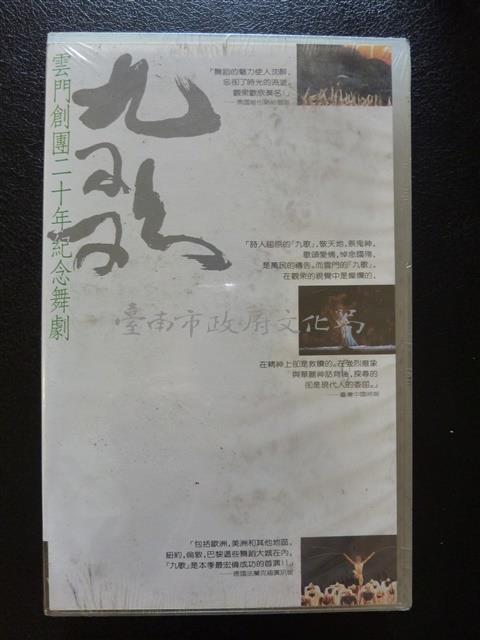 九歌
雲門創團二十年紀念舞劇
「舞蹈的魅力使人沈醉,
忘卻了時光的流逝。
觀眾歡欣莫名!」
「詩人屈原的「九歌」,敬天地,祭鬼神,
歌頌愛情,悼念國殤,
是萬民的禱告。而雲門的「九歌」,
在觀眾的視覺中是燦爛的,
臺南市政府文化局
在精神上卻是救贖的。在強烈意象
與華麗神話背後,探尋的
卻是現代人的委屈。」
——臺灣中國時報
「包括歐洲,美洲和其他地區,
紐約,倫敦,巴黎這些舞蹈大城在內,
「九歌」是本季最宏偉成功的首演!!」
——德國法蘭克福廣訊報